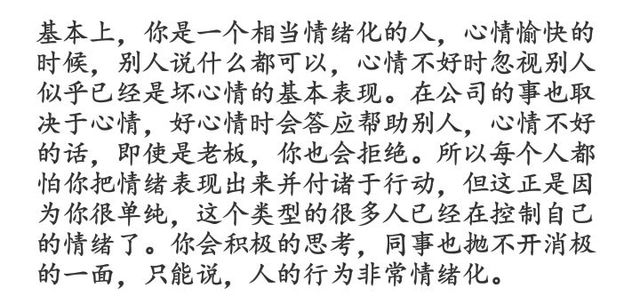 基本上，你是一个相当情绪化的人，心情愉快的
时候，别人说什么都可以，心情不好时忽视别人
似乎已经是坏心情的基本表现。在公司的事也取
决于心情，好心情时会答应帮助别人，心情不好
的话，即使是老板，你也会拒绝。所以每个人都
怕你把情绪表现出来并付诸于行动，但这正是因
为你很单纯，这个类型的很多人已经在控制自己
的情绪了。你会积极的思考，同事也抛不开消极
的一面，只能说，人的行为非常情绪化。